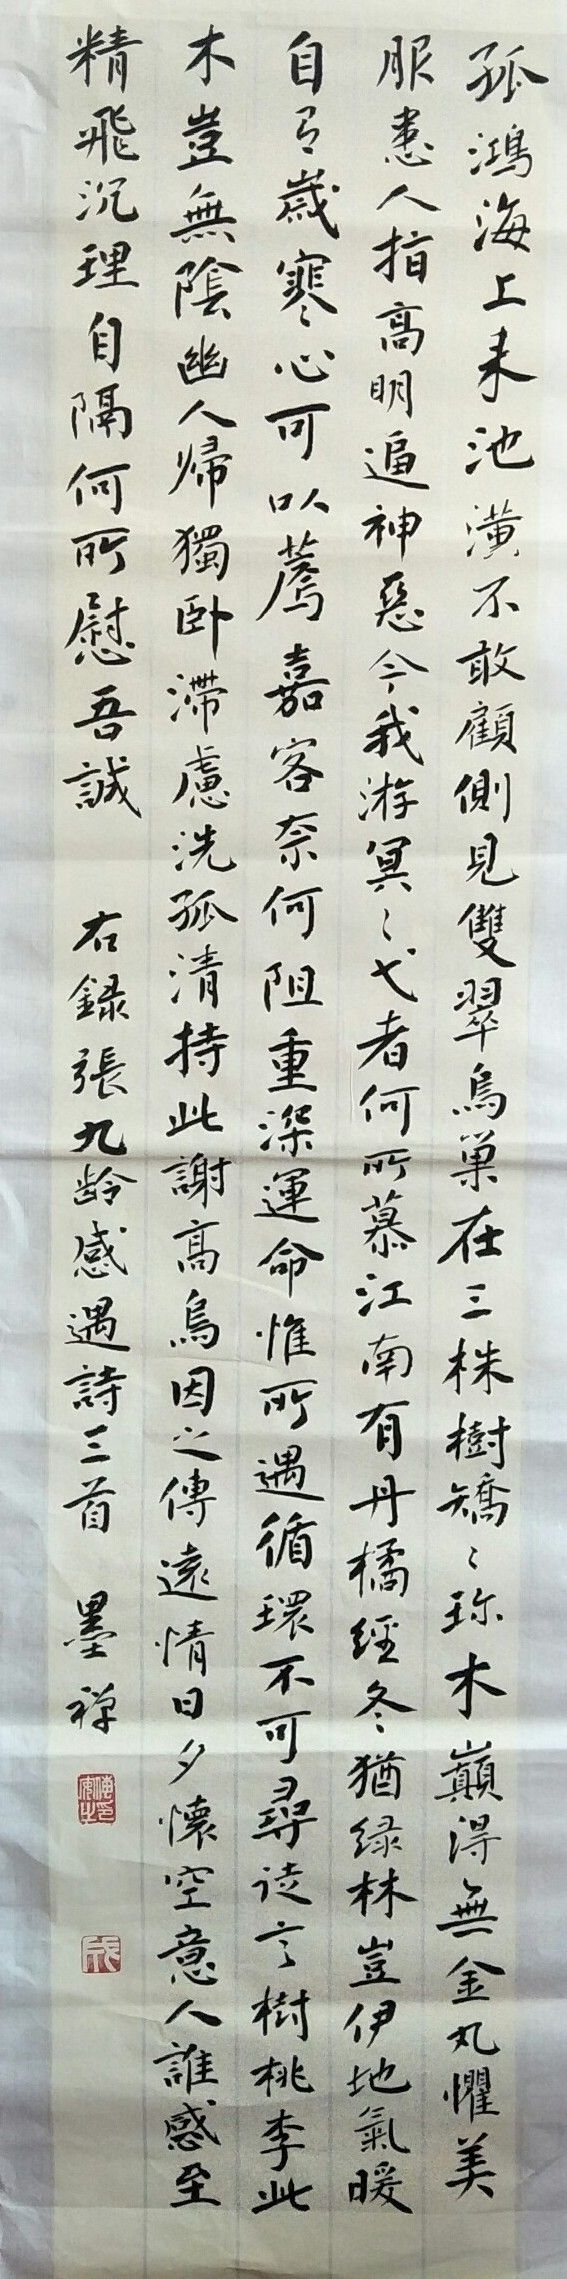 孤鴻海上来池潢不敢顧側見雙翠鳥巢在三株樹矯〻珎木巔得無金丸懼美
服患人指高明逼神惡今我游冥〻弋者何所慕江南有丹橘經冬猶绿林豈伊地氣暖
自有歲寒心可以薦嘉客奈何阻重深運命惟所遇循環不可尋徒言樹桃李此
木豈無陰幽人帰獨卧滯慮洗孤清持此謝高鳥因之傳遠情日夕懷空意人誰感至
精飛沉理自隔何所慰吾誠 右録張九龄感遇詩三首 墨禅